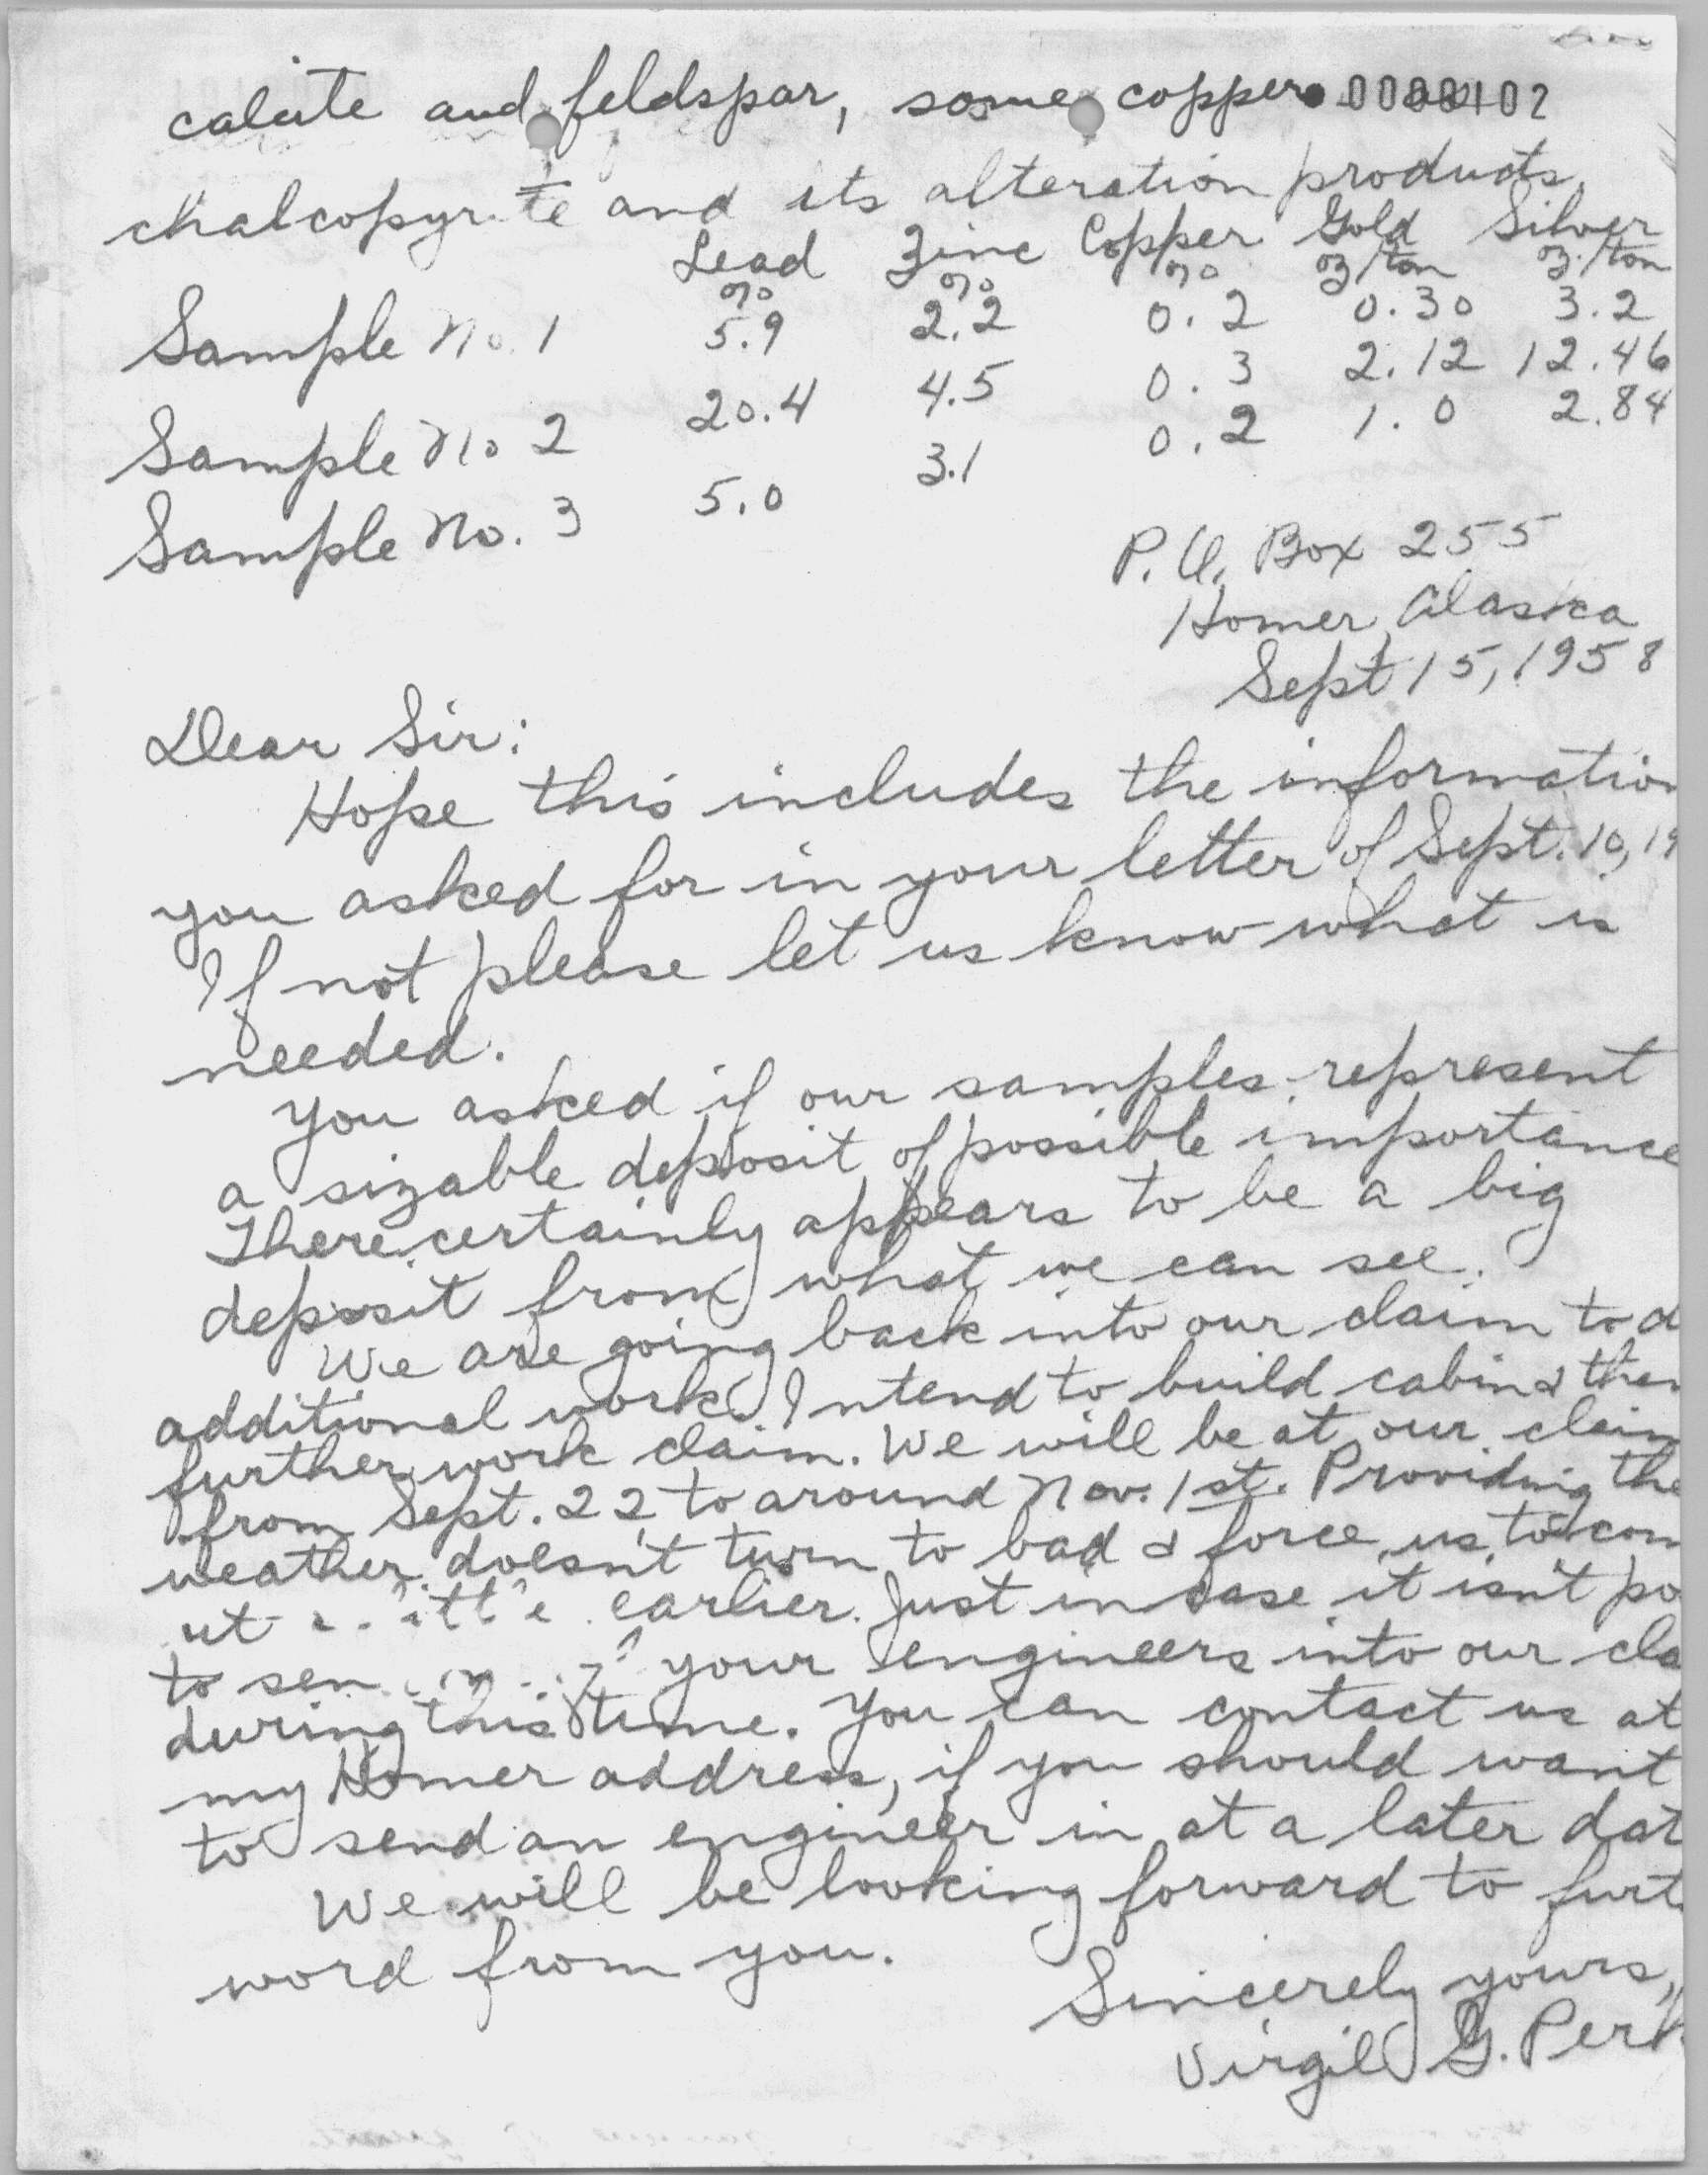 calcite and feldspar, some copper as 0000102
chalcopyrite and its alteration products.
Lead Zinc Copper Gold Silver
% % % oz/ton oz./ton
Sample No. 1 5.9 2.2 0.2 0.30 3.2
Sample No 2 20.4 4.5 0.3 2.12 12.46
Sample No. 3 5.0 3.1 0.2 1.0 2.84
P.O. Box 255
Homer, Alaska
Sept 15, 1958
Dear Sir:
Hope this includes the information
you asked for in your letter of Sept. 10, 19
If not please let us know what is
needed.
You asked if our samples represent
a sizable deposit of possible importance
There certainly appears to be a big
deposit from what we can see.
We are going back into our claim to d
additional work. Intend to build cabin & then
further work claim. We will be at our claim
from Sept. 22 to around Nov. 1st. Providing the
weather doesn't turn to bad & force us to com
ut earlier. Just in case it isn't po
to sen your engineers into our cla
during this time. You can contact us at
my Homer address, if you should want
to send an engineer in at a later dat
We will be looking forward to furt
word from you.
Sincerely yours,
Virgil G. Perk